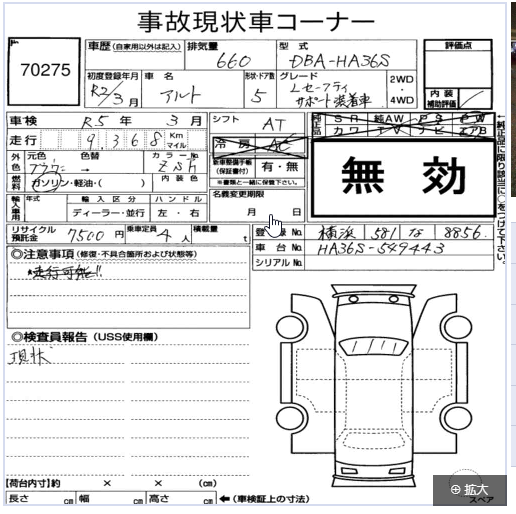 事故現状車コーナー
70275
車歴 (自家用以外は記入)
排気量 660
型式 DBA-HA36S
評価点
初度登録年月 R2/3月
車名 アルト
形状・ドア数 5
グレード Lセーフティサポート装着車
2WD・4WD
内装補助評価
車検 R.5年 3月
シフト AT
純正品 SR 純AW PS PW
カワ TV ナビ エアB
走行 9,368 Km マイル
冷房 AC
外色 元色 色替 → カラーNo ZSH
新車整備手帳(保証書付) 有・無
※書類と一緒に保管下さい。
燃料 ガソリン・軽油・( ) 内装色
無効
名義変更期限 月 日
輸入車用 年式 輸入区分 ディーラー・並行 ハンドル 左・右
←純正品に限り該当に○をつけて下さい。
リサイクル預託金 7500円 乗車定員 4人 積載量 t
登録No. 横浜 581 な 8856
車台No. HA36S-549443
シリアルNo.
◎注意事項 (修復・不具合箇所および状態等)
走行可能!!
◎検査員報告 (USS使用欄)
現状
【荷台内寸】約 × × (cm)
長さ cm 幅 cm 高さ cm ←(車検証上の寸法)
スペア
拡大